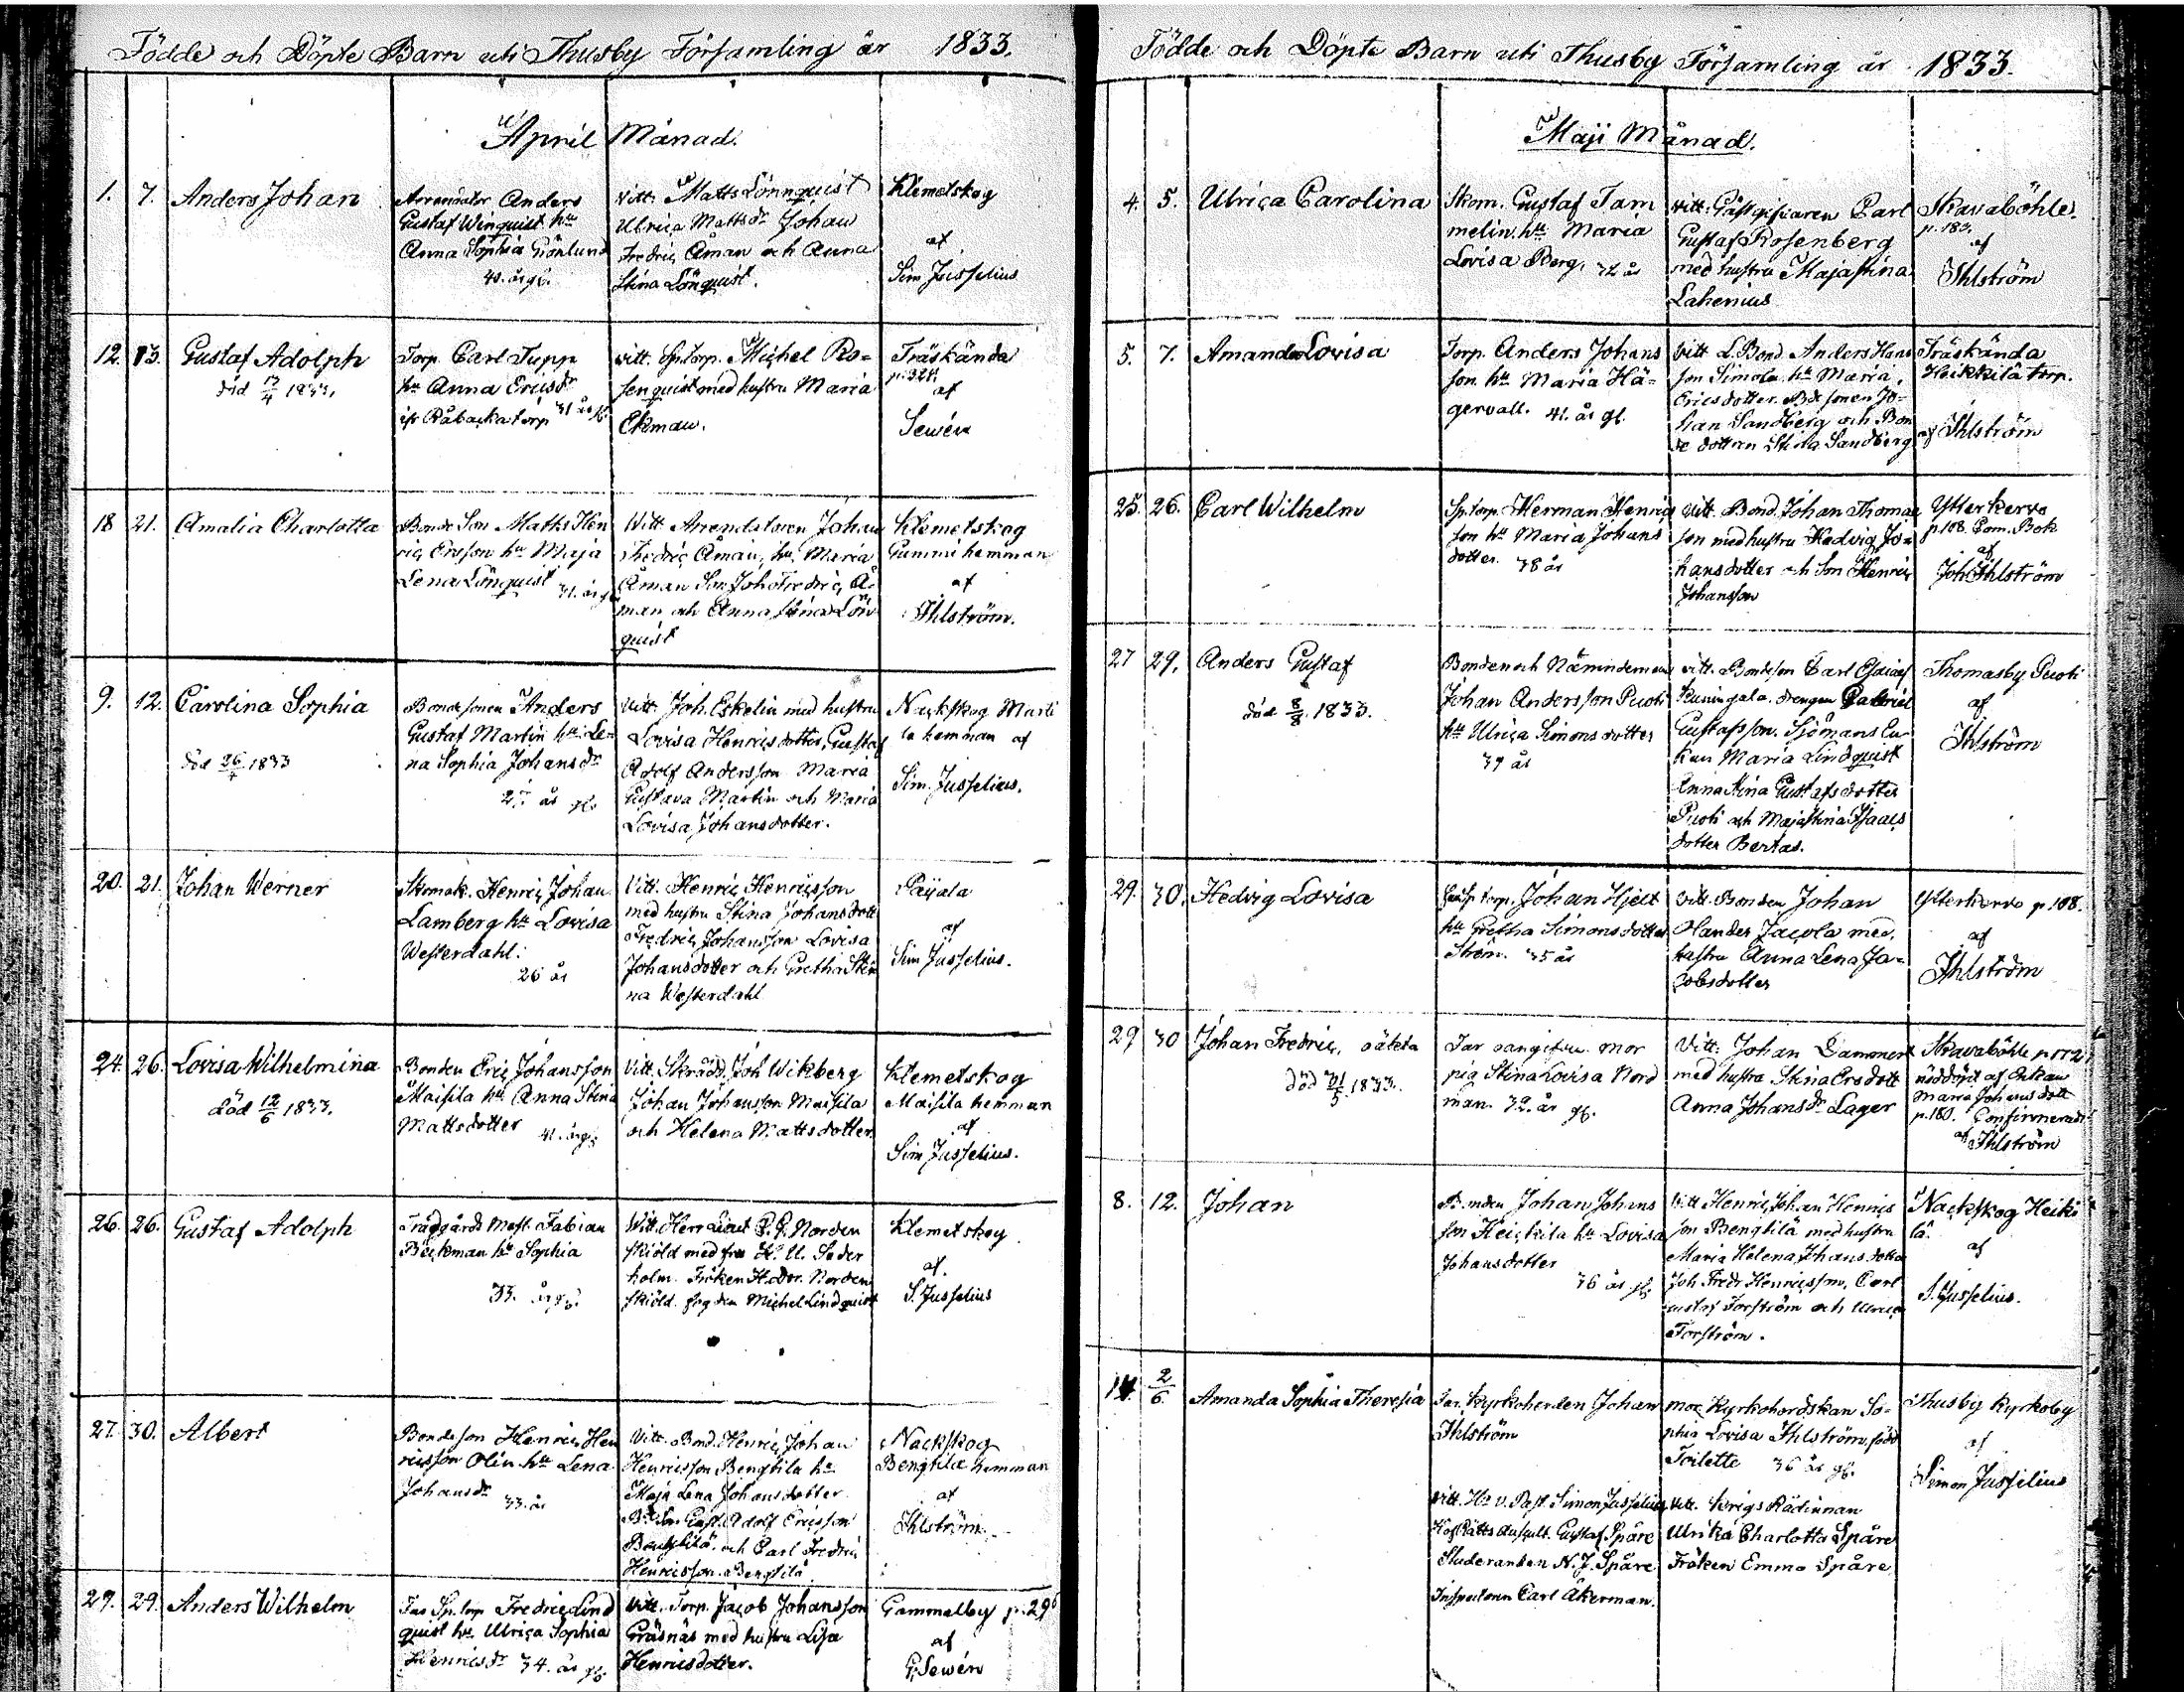 Födde och Döpte Barn uti Thusby Församling år 1833.
April Månad.
1. 7. Anders Johan
Arrendator Anders
Gustaf Winquist hu
Anna Sophia Grönlund
40. år gl.
vitt. Matts Lönnquist
Ulrica Mattsdr Johan
Fredric Åman och Anna
Stina Lönquist.
Klemetskog
af
Sim Jusselius
12. 13. Gustaf Adolph
död 13/4 1833.
Torp. Carl Tupp
hu Anna Ericsdr
ifr Råbacka torp 31 år gl.
vitt. Sp.torp. Michel Ro=
senquist med hustru Maria
Ekman.
Träskända
p. 321.
af
Sewén
18 21. Amalia Charlotta
Bonde Son Matts Hen
ric Ersson hu Maja
Lena Lönquist 31. år gl
Witt. Arrendatoren Johan
Fredric Åman, hu. Maria
Åman Son Joh Fredric Å=
man och Anna Stina Lön
quist
Klemetskog
Gummi hemman
af
Ihlström.
9. 12. Carolina Sophia
död 26/4 1833
Bondesonen Anders
Gustaf Martin hu Le=
na Sophia Johansdr
27 år gl.
vitt. Joh. Eskelin med hustru
Lovisa Henricsdotter, Gustaf
Adolf Andersson Maria
Gustava Martin och Maria
Lovisa Johansdotter.
Nackskog Marti
la hemman af
Sim. Jusselius.
20. 21. Johan Werner
Skomak. Henric Johan
Lamberg hu Lovisa
Westerdahl.
26 år
Vitt. Henric Henricsson
med hustru Stina Johansdott
Fredric Johansson Lovisa
Johansdotter och Gretha Sti
na Westerdahl
Paijala
af
Sim Jusselius.
24. 26. Lovisa Wilhelmina
död 12/6 1833.
Bonden Eric Johansson
Maisila hu Anna Stina
Mattsdotter 41. år gl.
Vitt. Skrädd. Joh Wikberg
Johan Johansson Maisila
och Helena Mattsdotter
Klemetskog
Maisila hemman
af
Sim Jusselius.
26. 26. Gustaf Adolph
Trädgårds Mast. Fabian
Beckman hu Sophia
33. år gl.
Witt. Herr Lieut P. G. Norden
skiöld med fru H. U. Seder
holm. Fröken H. Dor. Norden
skiöld. Michel Lindquist
Klemetskog
af.
S. Jusselius
27. 30. Albert
Bondeson Henric Hen
ricsson Olin hu Lena
Johansdr 33. år
Vitt. Bond. Henric Johan
Henricsson Bengtila hu
Maja Lena Johansdotter
Bd. Son Gust. Adolf Ericsson
Bengtilä. och Carl Fredric
Henricsson. Bengtilä.
Nackskog
Bengtila hemman
af
Ihlström.
29. 29. Anders Wilhelm
Far Sp.torp Fredric Lind
quist hu Ulrica Sophia
Henricsdr 34. år gl.
Vitt. Torp. Jacob Johansson
Gräsnäs med hustru Lisa
Henricsdotter.
Gammelby p. 296
af
G. Sewén
Födde och Döpte Barn uti Thusby Församling år 1833.
Maji Månad.
4. 5. Ulrica Carolina
Skom. Gustaf Tam
melin. hu Maria
Lovisa Berg. 32 år
vitt. Gästgifvaren Carl
Gustaf Rosenberg
med hustru Maja Stina
Lahenius
Skavaböhle.
p. 183.
af
Ihlström
5. 7. Amanda Lovisa
Torp. Anders Johans
son hu Maria Hä=
gervall. 41. år gl.
Vitt L. Bond. Anders Hans
son Simola hu Maria
Ericsdotter. Bdsonen Jo=
han Sandberg och Bon
de dottren Stina Sandberg
Träskända
Heikkilä torp.
af Ihlström
25. 26. Carl Wilhelm
Sp.torp. Herman Henric
son hu Maria Johans
dotter. 38 år
Vitt. Bond. Johan Thomas
son med hustru Hedvig Jo=
hansdotter och Son Henric
Johansson
Ytterkervo
p. 108. Com. Bok
af
Joh Ihlström
27 29. Anders Gustaf
död 8/8. 1833.
Bonden och Nämndeman
Johan Andersson Puoti
hu Ulrica Simonsdotter
39 år
vitt. Bondeson Carl Esaias
Kuningala. drengen Gabriel
Gustafsson. Sjömans En
kan Maria Lindquist
Anna Stina Gustafsdotter
Puoti och Maja Stina Isaacs
dotter Bertas.
Thomasby Puoti
af
Ihlström
29. 30. Hedvig Lovisa
torp. Johan Hjelt
hu Gretha Simonsdotter
Ström. 35 år
Vitt. Bonden Johan
Olander Jacola med
hustru Anna Lena Ja=
cobsdotter
Ytterkervo p. 108.
af
Ihlström
29 30 Johan Fredric, oäkta
död 31/5. 1833.
Far oangifven. mor
pig Stina Lovisa Nord
man. 32. år gl.
Vitt. Johan Dammert
med hustru Stina Ersdott
Anna Johansdr Lager
Skavaböhle p. 172
nöddöpt af Enkan
Maria Johansdott
p. 180. Confirmerad
af Ihlström
8. 12. Johan
Bonden Johan Johans
son Heickila hu Lovisa
Johansdotter
36 år gl.
Vitt Henric Johan Henrics
son Bengtilä med hustru
Maria Helena Johansdotter
Joh Fredr Henricsson, Carl
Gustaf Forström och Ulrica
Forström.
Nackskog Heiki
lä.
af
S. Jusselius.
14. 2/6. Amanda Sophia Theresia
Far. Kyrkoherden Johan
Ihlström
mor Kyrkoherdskan So=
phia Lovisa Ihlström, född
Toilette 36 år gl.
Vitt. Hr V. Past. Simon Jusselius
HofRätts Auscult. Gustaf Spåre
Studeranden N. J. Spåre
Inspectoren Carl Åkerman.
Vitt. Krigs Rådinnan
Ulrika Charlotta Spåre
Fröken Emma Spåre
Thusby Kyrkoby
af
Simon Jusselius